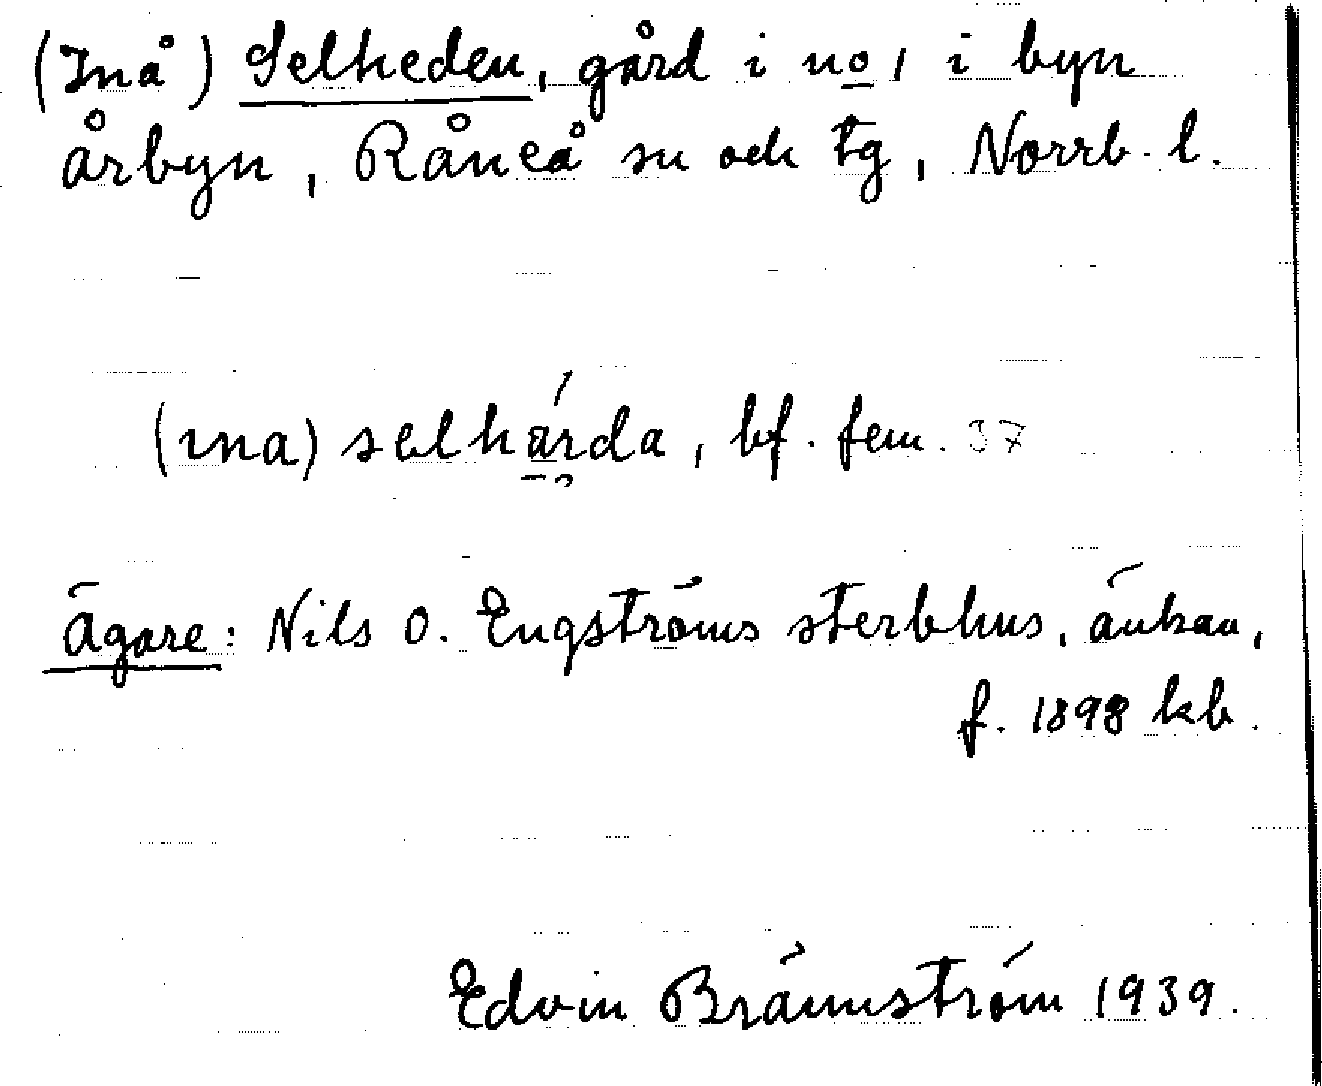 (Inå) Selheden, gård i no 1 i byn
årbyn, Råneå sn och tg, Norrb. l.
(ına) selhärda, bf. fem. 37
Ägare: Nils O. Engströms sterbhus, änkan,
f. 1898 kb.
Edvin Brännström 1939.